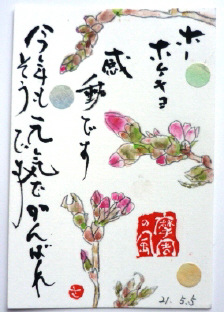 ホー
ホケキョ
感動です
今年も元気でがんばれ
そうです
21.5.5